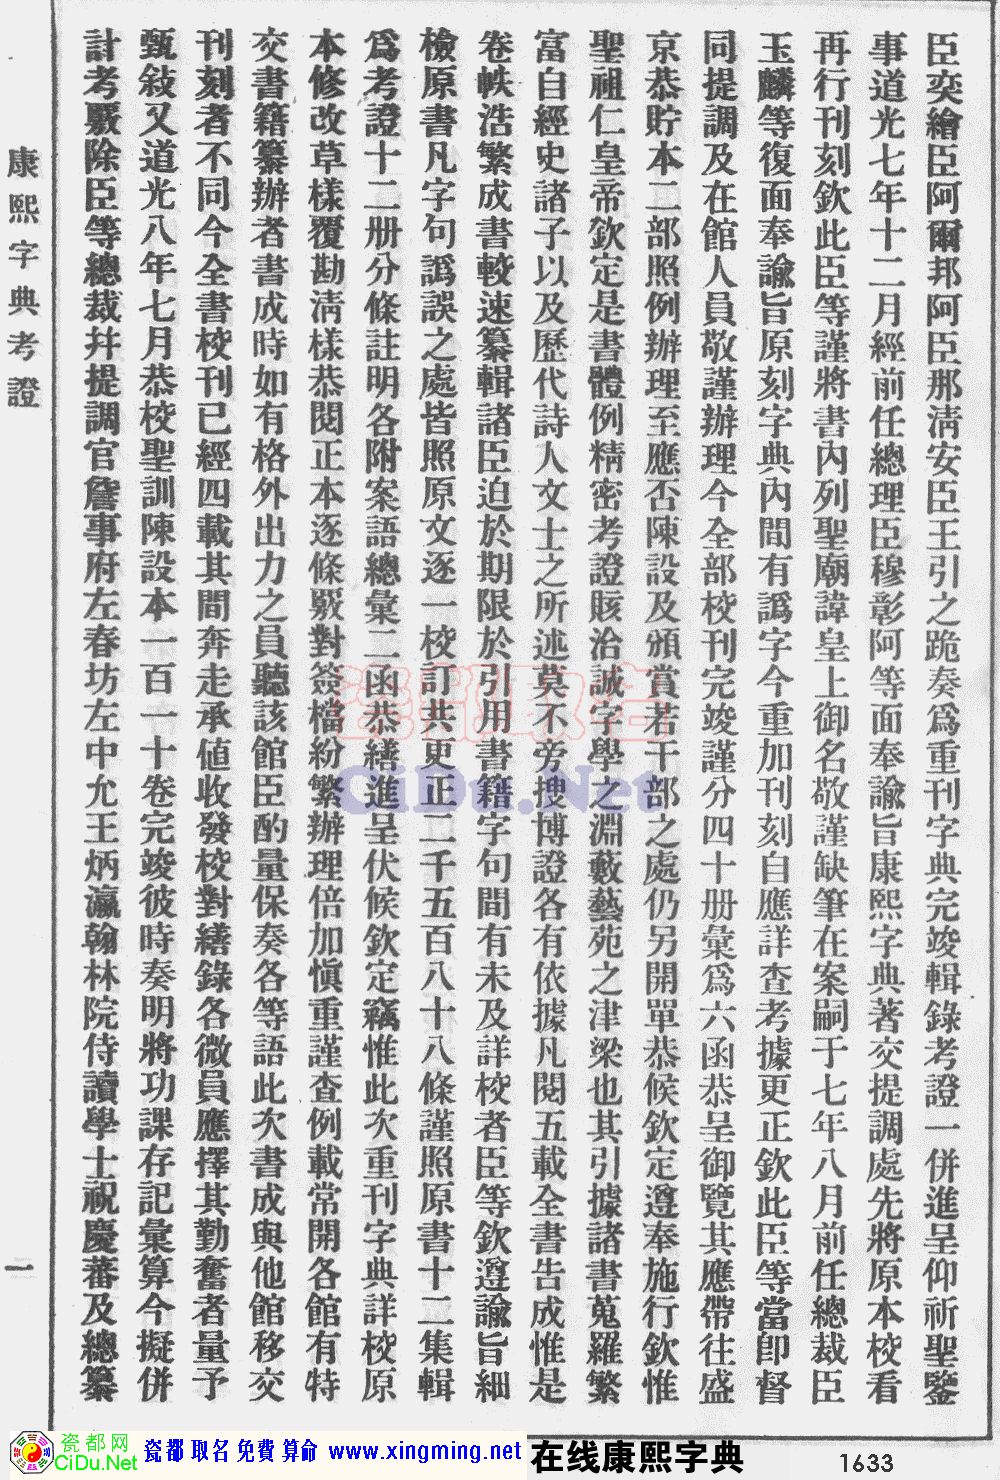 臣奕繪臣阿爾邦阿臣那淸安臣王引之跪奏爲重刊字典完竣輯錄考證一併進呈仰祈聖鑒
事道光七年十二月經前任總理臣穆彰阿等面奉諭旨康熙字典著交提調處先將原本校看
再行刊刻欽此臣等謹將書內列聖廟諱皇上御名敬謹缺筆在案嗣于七年八月前任總裁臣
玉麟等復面奉諭旨原刻字典內間有譌字今重加刊刻自應詳查考據更正欽此臣等當卽督
同提調及在館人員敬謹辦理今全部校刊完竣謹分四十册彙爲六函恭呈御覽其應帶往盛
京恭貯本二部照例辦理至應否陳設及頒賞若干部之處仍另開單恭候欽定遵奉施行欽惟
聖祖仁皇帝欽定是書體例精密考證賅洽誠字學之淵藪藝苑之津梁也其引據諸書蒐羅繁
富自經史諸子以及歷代詩人文士之所述莫不旁搜博證各有依據凡閱五載全書告成惟是
卷帙浩繁成書較速纂輯諸臣迫於期限於引用書籍字句間有未及詳校者臣等欽遵諭旨細
檢原書凡字句譌誤之處皆照原文逐一校訂共更正二千五百八十八條謹照原書十二集輯
爲考證十二册分條註明各附案語總彙二函恭繕進呈伏候欽定竊惟此次重刊字典詳校原
本修改草樣覆勘淸樣恭閱正本逐條覈對簽檔紛繁辦理倍加愼重謹查例載常開各館有特
交書籍纂辦者書成時如有格外出力之員聽該館臣酌量保奏各等語此次書成與他館移交
刊刻者不同今全書校刊已經四載其間奔走承値收發校對繕錄各微員應擇其勤奮者量予
甄敍又道光八年七月恭校聖訓陳設本一百一十卷完竣彼時奏明將功課存記彙算今擬併
計考覈除臣等總裁幷提調官詹事府左春坊左中允王炳瀛翰林院侍讀學士祝慶蕃及總纂
康熙字典考證
一
瓷都取名
CiDu.Net
瓷都网
CiDu.Net
瓷都取名免費算命 www.xingming.net
在线康熙字典
1633